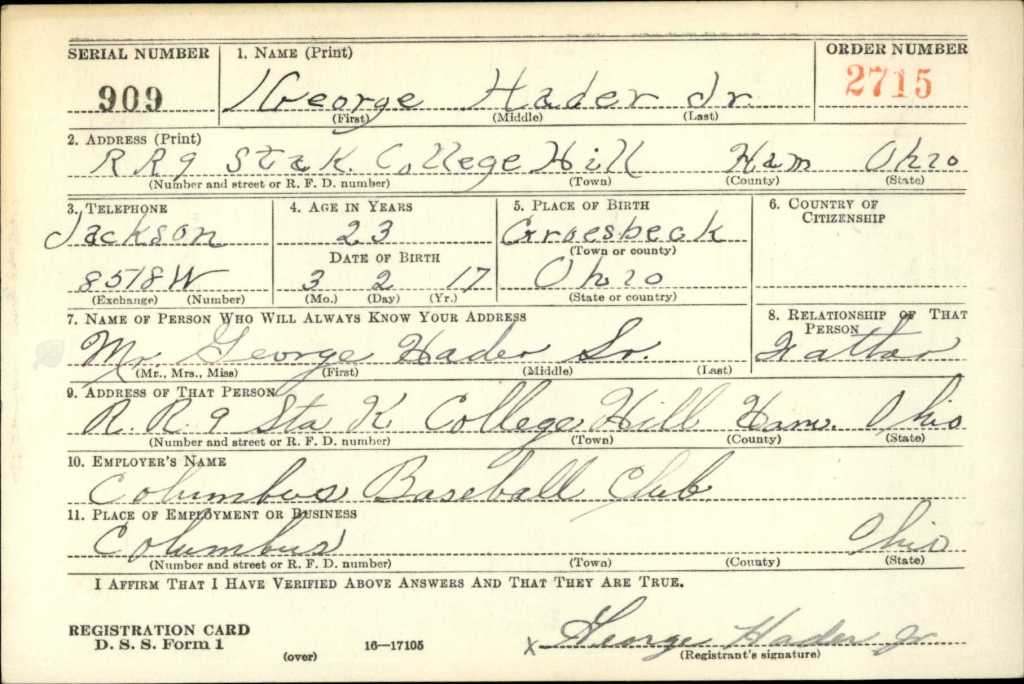 SERIAL NUMBER 1. NAME (Print) ORDER NUMBER
909 George Hader Jr. 2715
(First) (Middle) (Last)
2. ADDRESS (Print)
R R 9 Sta K. College Hill Ham Ohio
(Number and street or R. F. D. number) (Town) (County) (State)
3. TELEPHONE 4. AGE IN YEARS 5. PLACE OF BIRTH 6. COUNTRY OF
CITIZENSHIP
Jackson 23 Groesbeck
(Town or county)
DATE OF BIRTH
8578W 3 2 17 Ohio
(Exchange) (Number) (Mo.) (Day) (Yr.) (State or country)
7. NAME OF PERSON WHO WILL ALWAYS KNOW YOUR ADDRESS 8. RELATIONSHIP OF THAT
PERSON
Mr. George Hader Sr. Father
(Mr., Mrs., Miss) (First) (Middle) (Last)
9. ADDRESS OF THAT PERSON
R. R. 9 Sta K College Hill Ham. Ohio
(Number and street or R. F. D. number) (Town) (County) (State)
10. EMPLOYER'S NAME
Columbus Baseball Club
11. PLACE OF EMPLOYMENT OR BUSINESS
Columbus Ohio
(Number and street or R. F. D. number) (Town) (County) (State)
I AFFIRM THAT I HAVE VERIFIED ABOVE ANSWERS AND THAT THEY ARE TRUE.
REGISTRATION CARD
D. S. S. Form 1 (over) 16—17105 x George Hader Jr
(Registrant's signature)